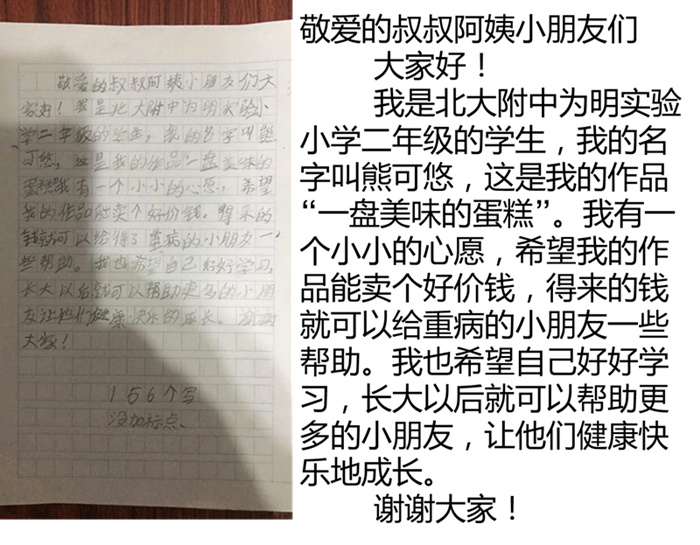 敬爱的叔叔阿姨小朋友们大
家好！我是北大附中为明实验小
学二年级的学生，我的名字叫熊
可悠，这是我的作品“一盘美味的
蛋糕”我有一个小小的心愿，希望
我的作品能卖个好价钱。得来的
钱就可以给得了重病的小朋友一
些帮助。我也希望自己好好学习，
长大以后就可以帮助更多的小朋
友让他们健康快乐的成长。谢谢
大家！
156个字
没加标点、
敬爱的叔叔阿姨小朋友们
大家好！
我是北大附中为明实验
小学二年级的学生，我的名
字叫熊可悠，这是我的作品
“一盘美味的蛋糕”。我有一
个小小的心愿，希望我的作
品能卖个好价钱，得来的钱
就可以给重病的小朋友一些
帮助。我也希望自己好好学
习，长大以后就可以帮助更
多的小朋友，让他们健康快
乐地成长。
谢谢大家！